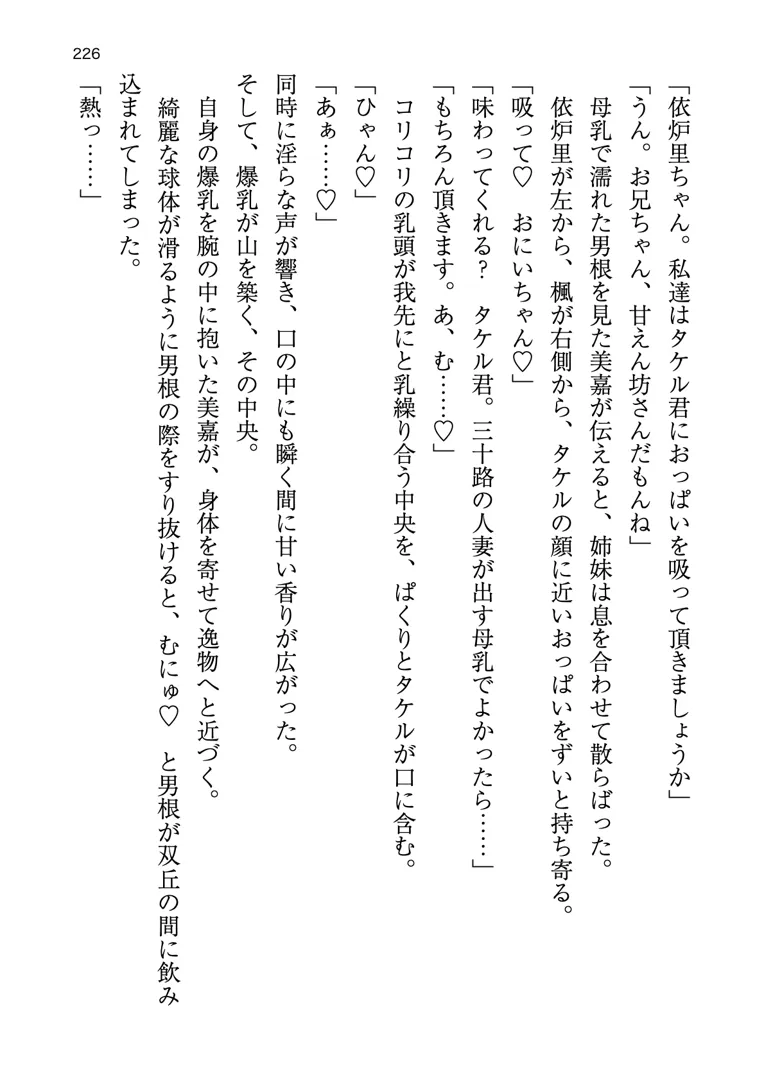 226
「依炉里ちゃん。私達はタケル君におっぱいを吸って頂きましょうか」
「うん。お兄ちゃん、甘えん坊さんだもんね」
母乳で濡れた男根を見た美嘉が伝えると、姉妹は息を合わせて散らばった。
依炉里が左から、楓が右側から、タケルの顔に近いおっぱいをずいと持ち寄る。
「吸って♡　おにいちゃん♡」
「味わってくれる？　タケル君。三十路の人妻が出す母乳でよかったら……」
「もちろん頂きます。あ、む……♡」
コリコリの乳頭が我先にと乳繰り合う中央を、ぱくりとタケルが口に含む。
「ひゃん♡」
「あぁ……♡」
同時に淫らな声が響き、口の中にも瞬く間に甘い香りが広がった。
そして、爆乳が山を築く、その中央。
自身の爆乳を腕の中に抱いた美嘉が、身体を寄せて逸物へと近づく。
綺麗な球体が滑るように男根の際をすり抜けると、むにゅ♡　と男根が双丘の間に飲み
込まれてしまった。
「熱っ……」